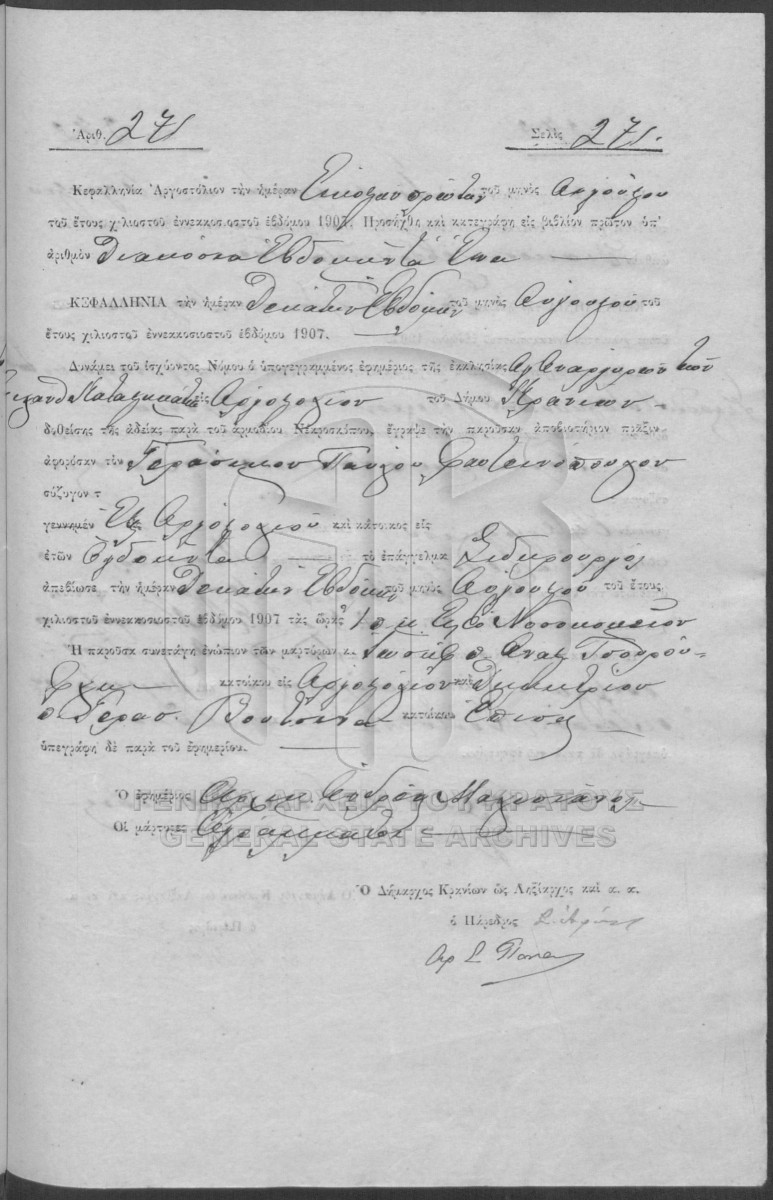 Ἀριθ. 271 Σελὶς 271.
Κεφαλληνία Ἀργοστόλιον τὴν ἡμέραν Εἰκοστὴν πρώτην τοῦ μηνὸς Αὐγούστου
τοῦ ἔτους χιλιοστοῦ ἐννεακοσιοστοῦ ἑβδόμου 1907. Προσήχθη καὶ κατεγράφη εἰς βιβλίον πρῶτον ὑπ'
ἀριθμὸν Διακόσια Ἑβδομῆντα Ἕνα
ΚΕΦΑΛΛΗΝΙΑ τὴν ἡμέραν Δεκάτην Ἑβδόμην τοῦ μηνὸς Αὐγούστου τοῦ
ἔτους χιλιοστοῦ ἐννεακοσιοστοῦ ἑβδόμου 1907.
Δυνάμει τοῦ ἰσχύοντος Νόμου ὁ ὑπογεγραμμένος ἐφημέριος τῆς ἐκκλησίας Ἁγ Αναργύρων τῶν
εἰς Ἀργοστόλιον τοῦ Δήμου Κρανίων
δοθείσης τῆς ἀδείας παρὰ τοῦ ἁρμοδίου Νεκροσκόπου, ἔγραψε τὴν παροῦσαν ἀποβιωτήριον πρᾶξιν
ἀφορῶσαν τὸν Γεράσιμον Παύλου Φαντεινόπουλον
σύζυγον τ
γεννημέν Ἐξ Ἀργοστολίου καὶ κάτοικος εἰς
ἐτῶν Ὀγδοῆντα τὸ ἐπάγγελμα Σιδηρουργός
ἀπεβίωσε τὴν ἡμέραν Δεκάτην Ἑβδόμην τοῦ μηνὸς Αὐγούστου τοῦ ἔτους
χιλιοστοῦ ἐννεακοσιοστοῦ ἑβδόμου 1907 τὰς ὥρας 1 π μ Νοσοκομεῖον
Ἡ παροῦσα συνετάγη ἐνώπιον τῶν μαρτύρων κ. Ἰωσὴφ Αναστ
κατοίκου εἰς Ἀργοστόλιον καὶ Δημητρίου
Γερασ. Βουτσινα κατοίκου Ἐπίσης
ὑπεγράφη δὲ παρὰ τοῦ ἐφημερίου.
Ὁ ἐφημέριος Ἀρχιμ Ἀνδρέας
Οἱ μάρτυρες Ἀγράμματοι
ΓΕΝΙΚΑ ΑΡΧΕΙΑ ΤΟΥ ΚΡΑΤΟΥΣ
GENERAL STATE ARCHIVES
Ὁ Δήμαρχος Κρανίων ὡς Ληξίαρχος καὶ α. α.
ὁ Πάρεδρος